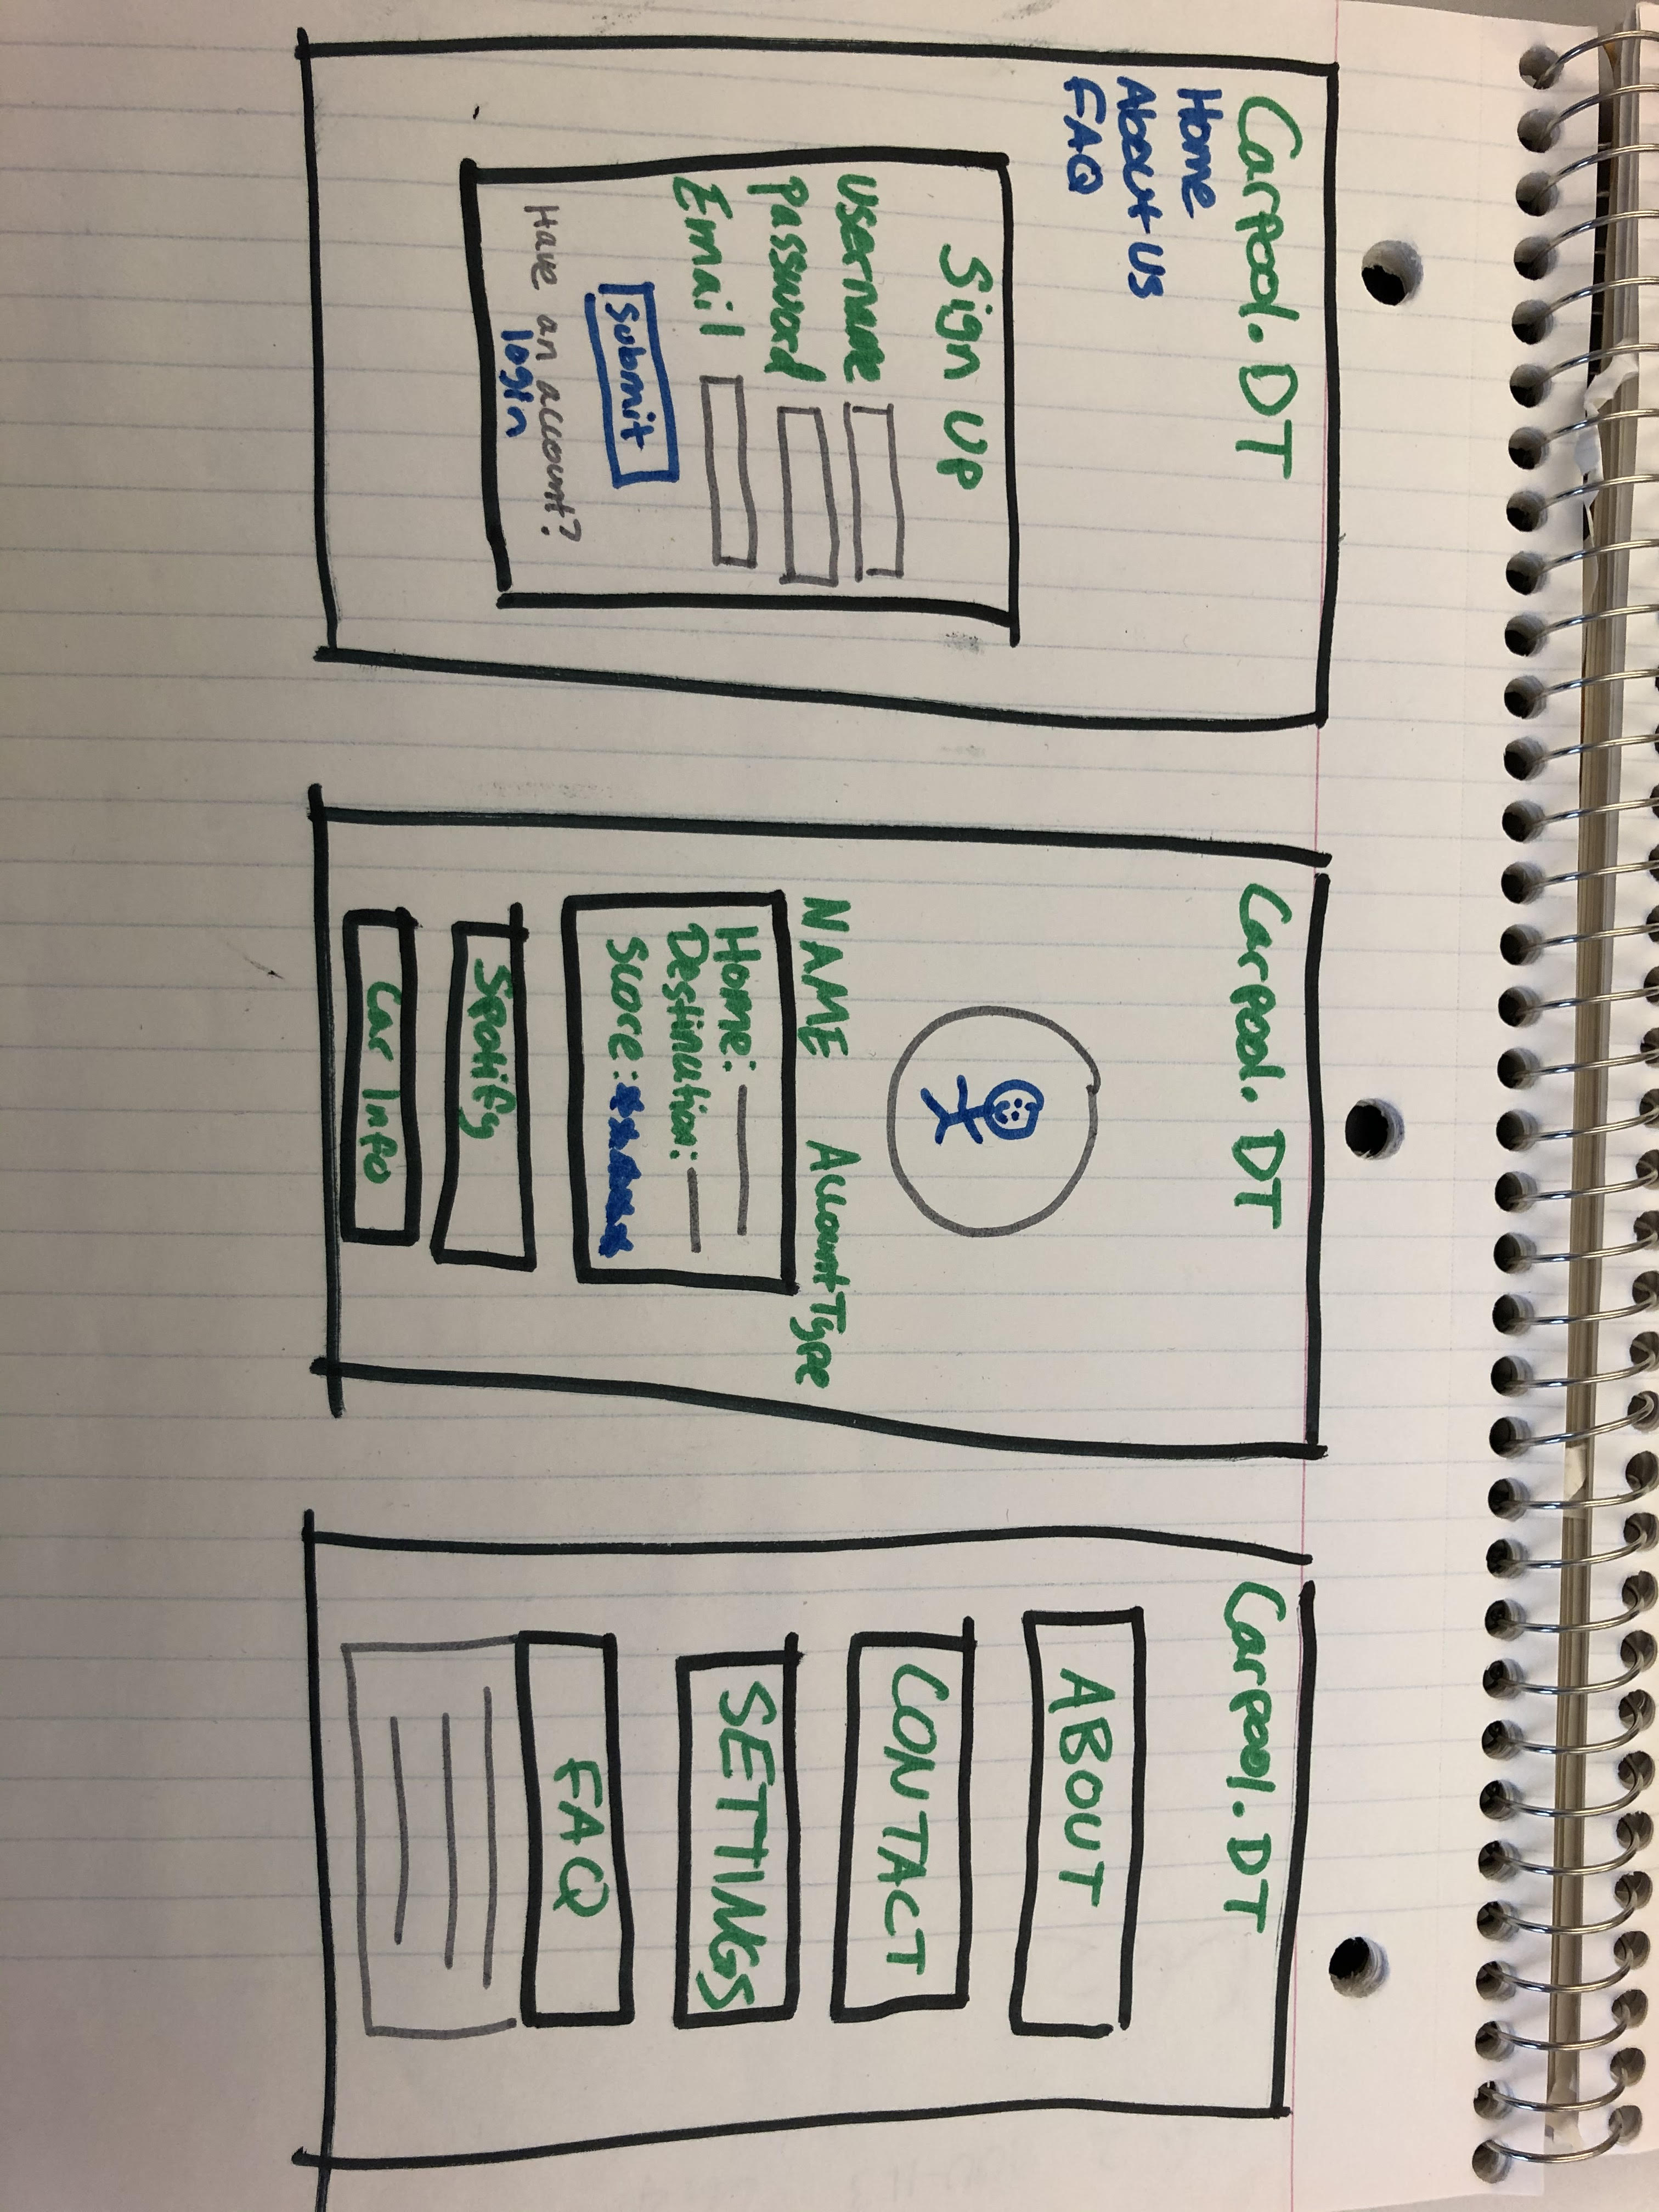 Carpool.DT
Home
About Us
FAQ
Sign Up
Username
Password
Email
Submit
Have an account?
login
Carpool.DT
NAME AccountType
Home:
Destination:
Score:*****
Spotify
Car Info
Carpool.DT
ABOUT
CONTACT
SETTINGS
FAQ